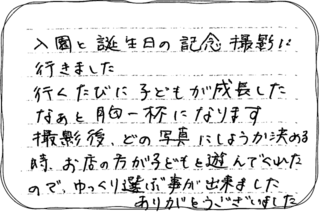 入園と誕生日の記念撮影に
行きました
行くたびに子どもが成長した
なぁと胸一杯になります
撮影後、どの写真にしようか決める
時、お店の方が子どもと遊んでくれた
ので、ゆっくり選ぶ事が出来ました
ありがとうございました